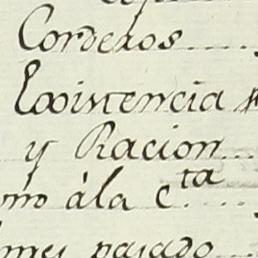 Corderos
Existencia
y Racion
àla cta
mes pasado